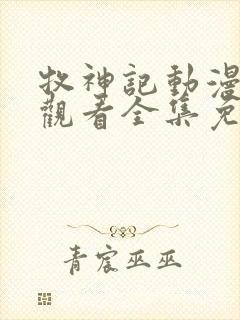 牧神記動漫
觀看全集免
青宸巫巫